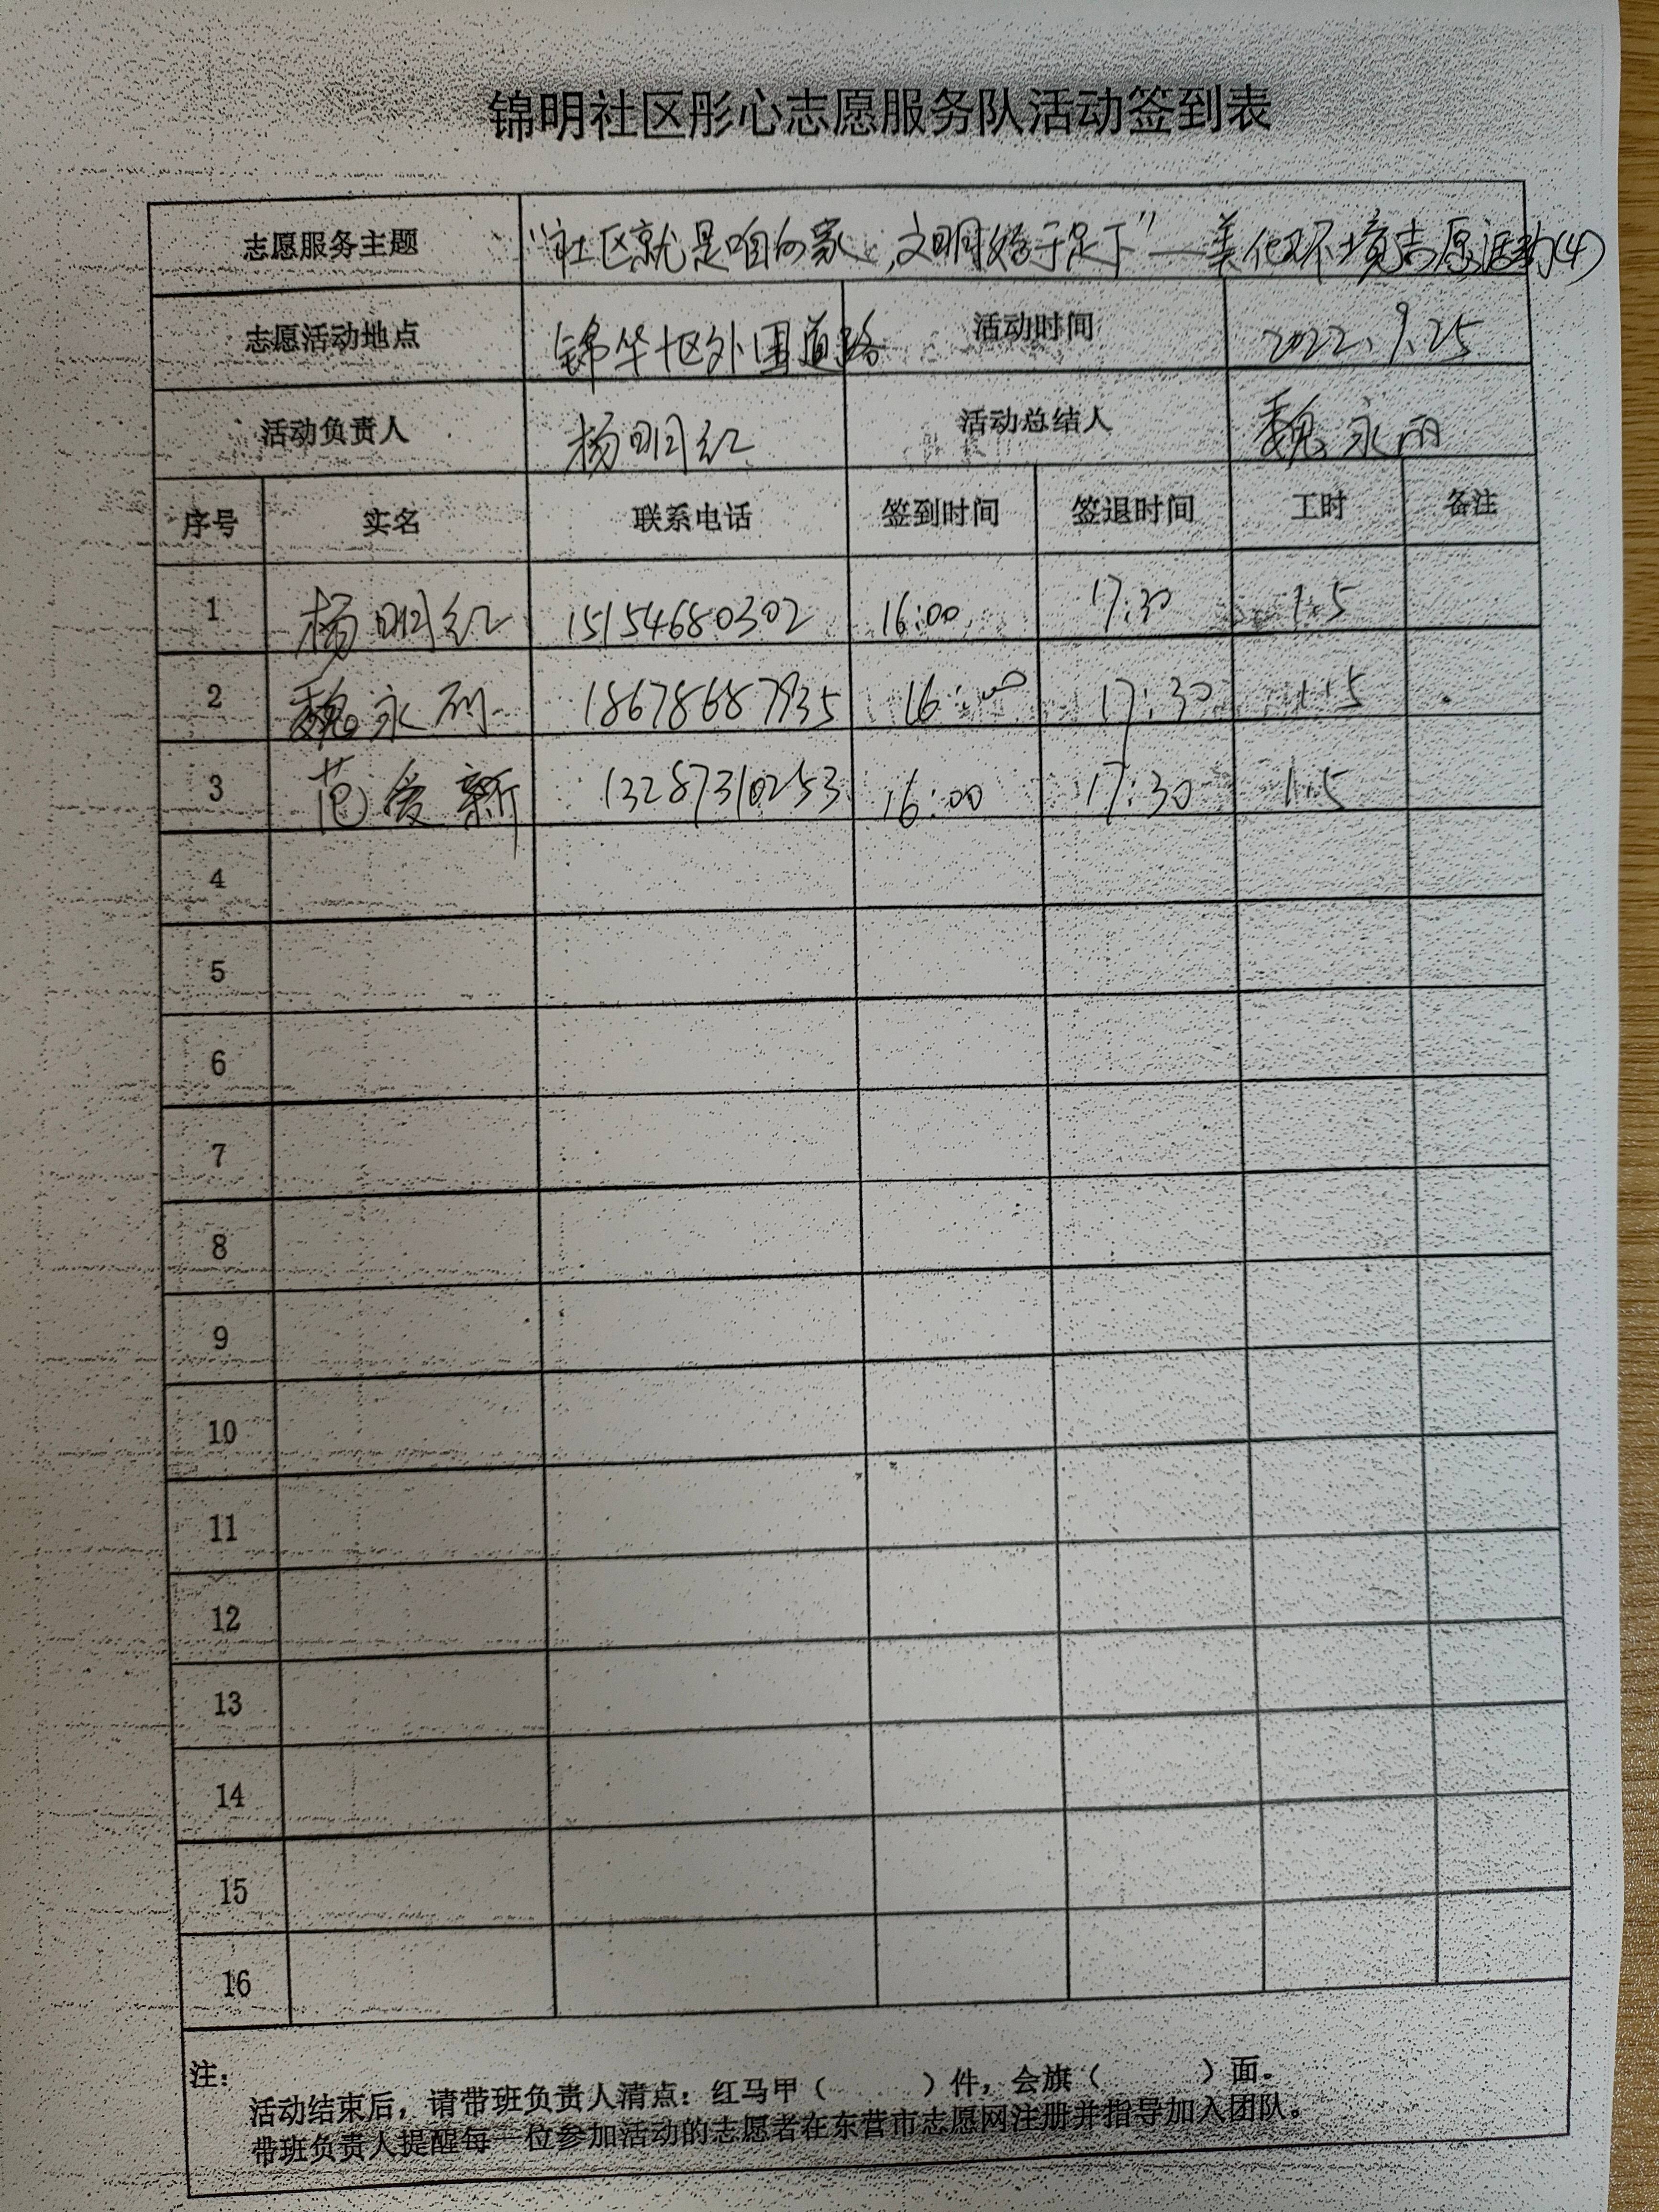 锦明社区彤心志愿服务队活动签到表
志愿服务主题 "社区就是咱的家,文明始于足下"—美化环境志愿活动(4)
志愿活动地点 锦华七区外围道路 活动时间 2022.9.25
活动负责人 杨明红 活动总结人 魏永丽
序号 实名 联系电话 签到时间 签退时间 工时 备注
1 杨明红 15154680302 16:00 17:30 1.5
2 魏永丽 18678687935 16:00 17:30 1.5
3 范爱新 13287310253 16:00 17:30 1.5
4
5
6
7
8
9
10
11
12
13
14
15
16
注:
活动结束后,请带班负责人清点:红马甲( )件,会旗( )面。
带班负责人提醒每一位参加活动的志愿者在东营市志愿网注册并指导加入团队。